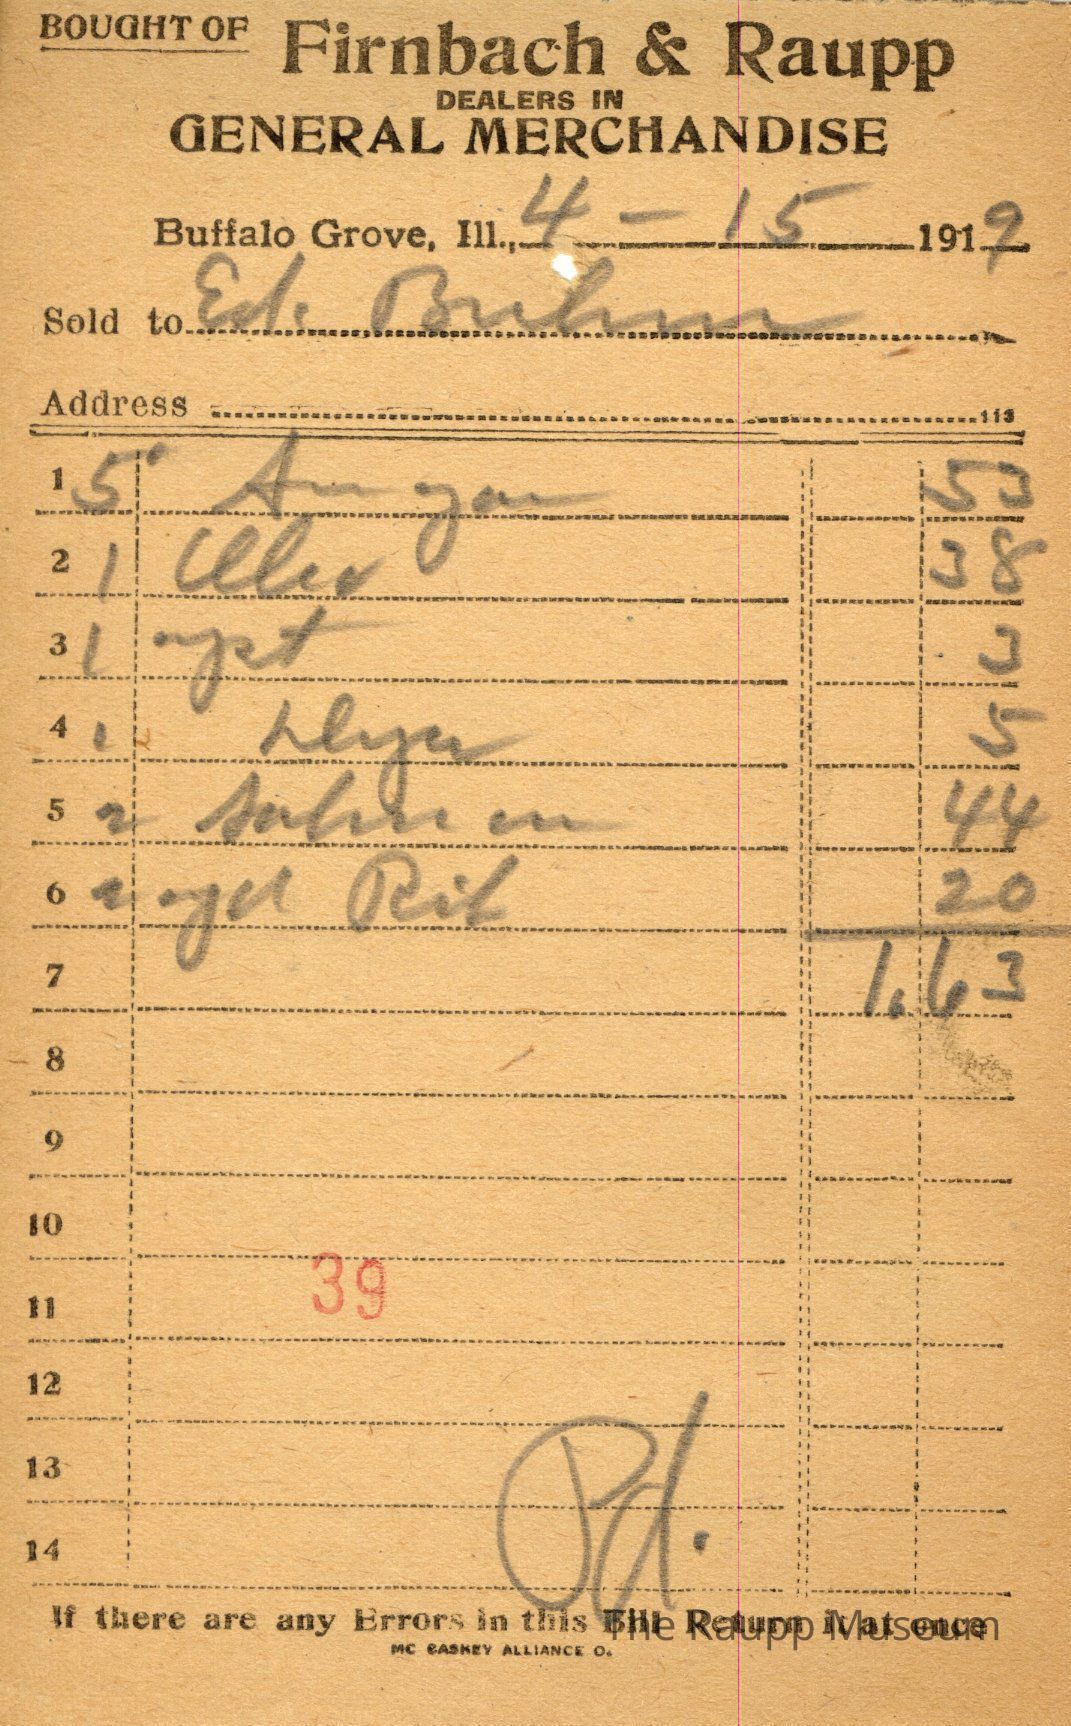 BOUGHT OF Firnbach & Raupp
DEALERS IN
GENERAL MERCHANDISE
Buffalo Grove, Ill., 4 - 15 1919
Sold to Ed.
Address 113
1 5 53
2 1 38
3 1 3
4 1 5
5 2 Salmon 44
6 2 Rit 20
7 1.63
8
9
10
39
11
12
13
Pd.
14
If there are any Errors in this Bill Return it at once
The Raupp Museum
MC CASKEY ALLIANCE O.